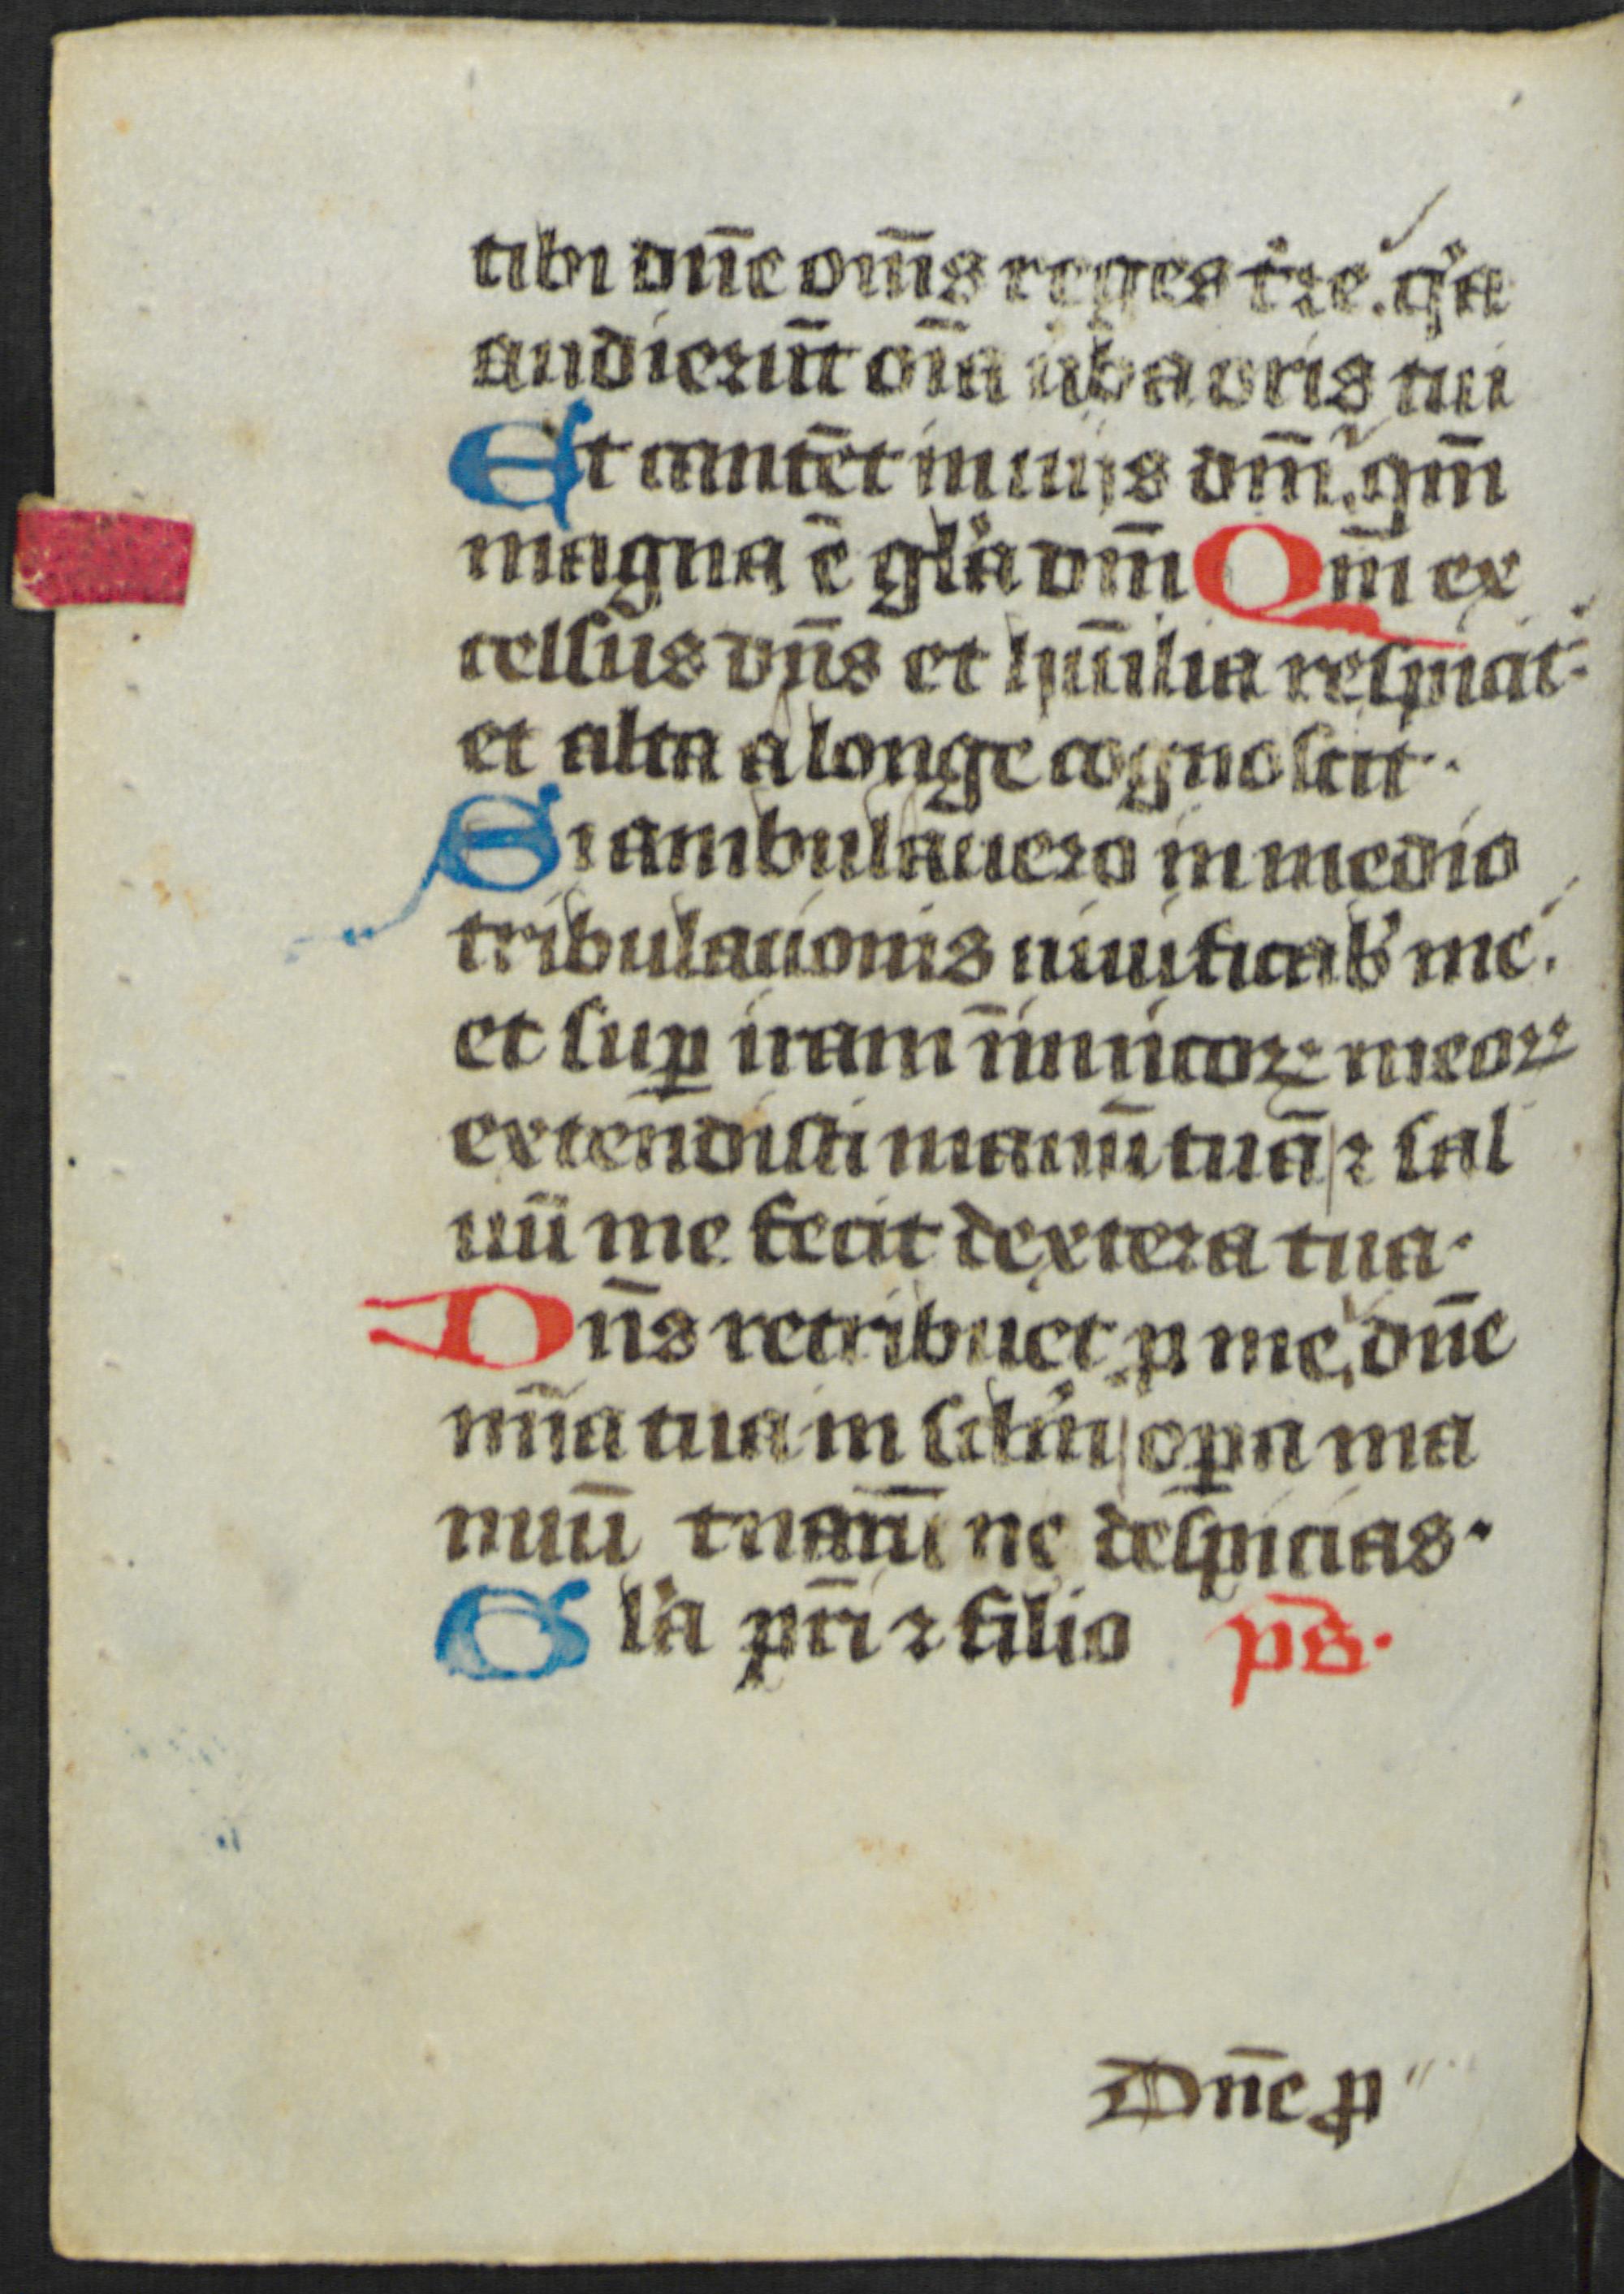 tibi dn̄e om̄s reges t̄re. qͥa
audierūt om̄a ūba oris tui
Et cantēt in uijs dn̄i. qm̄
magna ē glͣa dn̄i Qm̄ ex
celsus dn̄s et hūilia respicit
et alta a longe cognoscit.
Si ambulauero in medio
tribulacionis uiuificab̓ me.
et suꝑ iram īimicoꝝ meoꝝ
extendisti manū tuā ⁊ sal
uū me fecit dextera tua.
Dn̄s retribuet ꝓ me, dn̄e
mīa tua in sclm̄ oꝑa ma
nuū tuaꝝ ne despicias.
Glͣa pr̄i ⁊ filio pš.
Dn̄e ꝓ